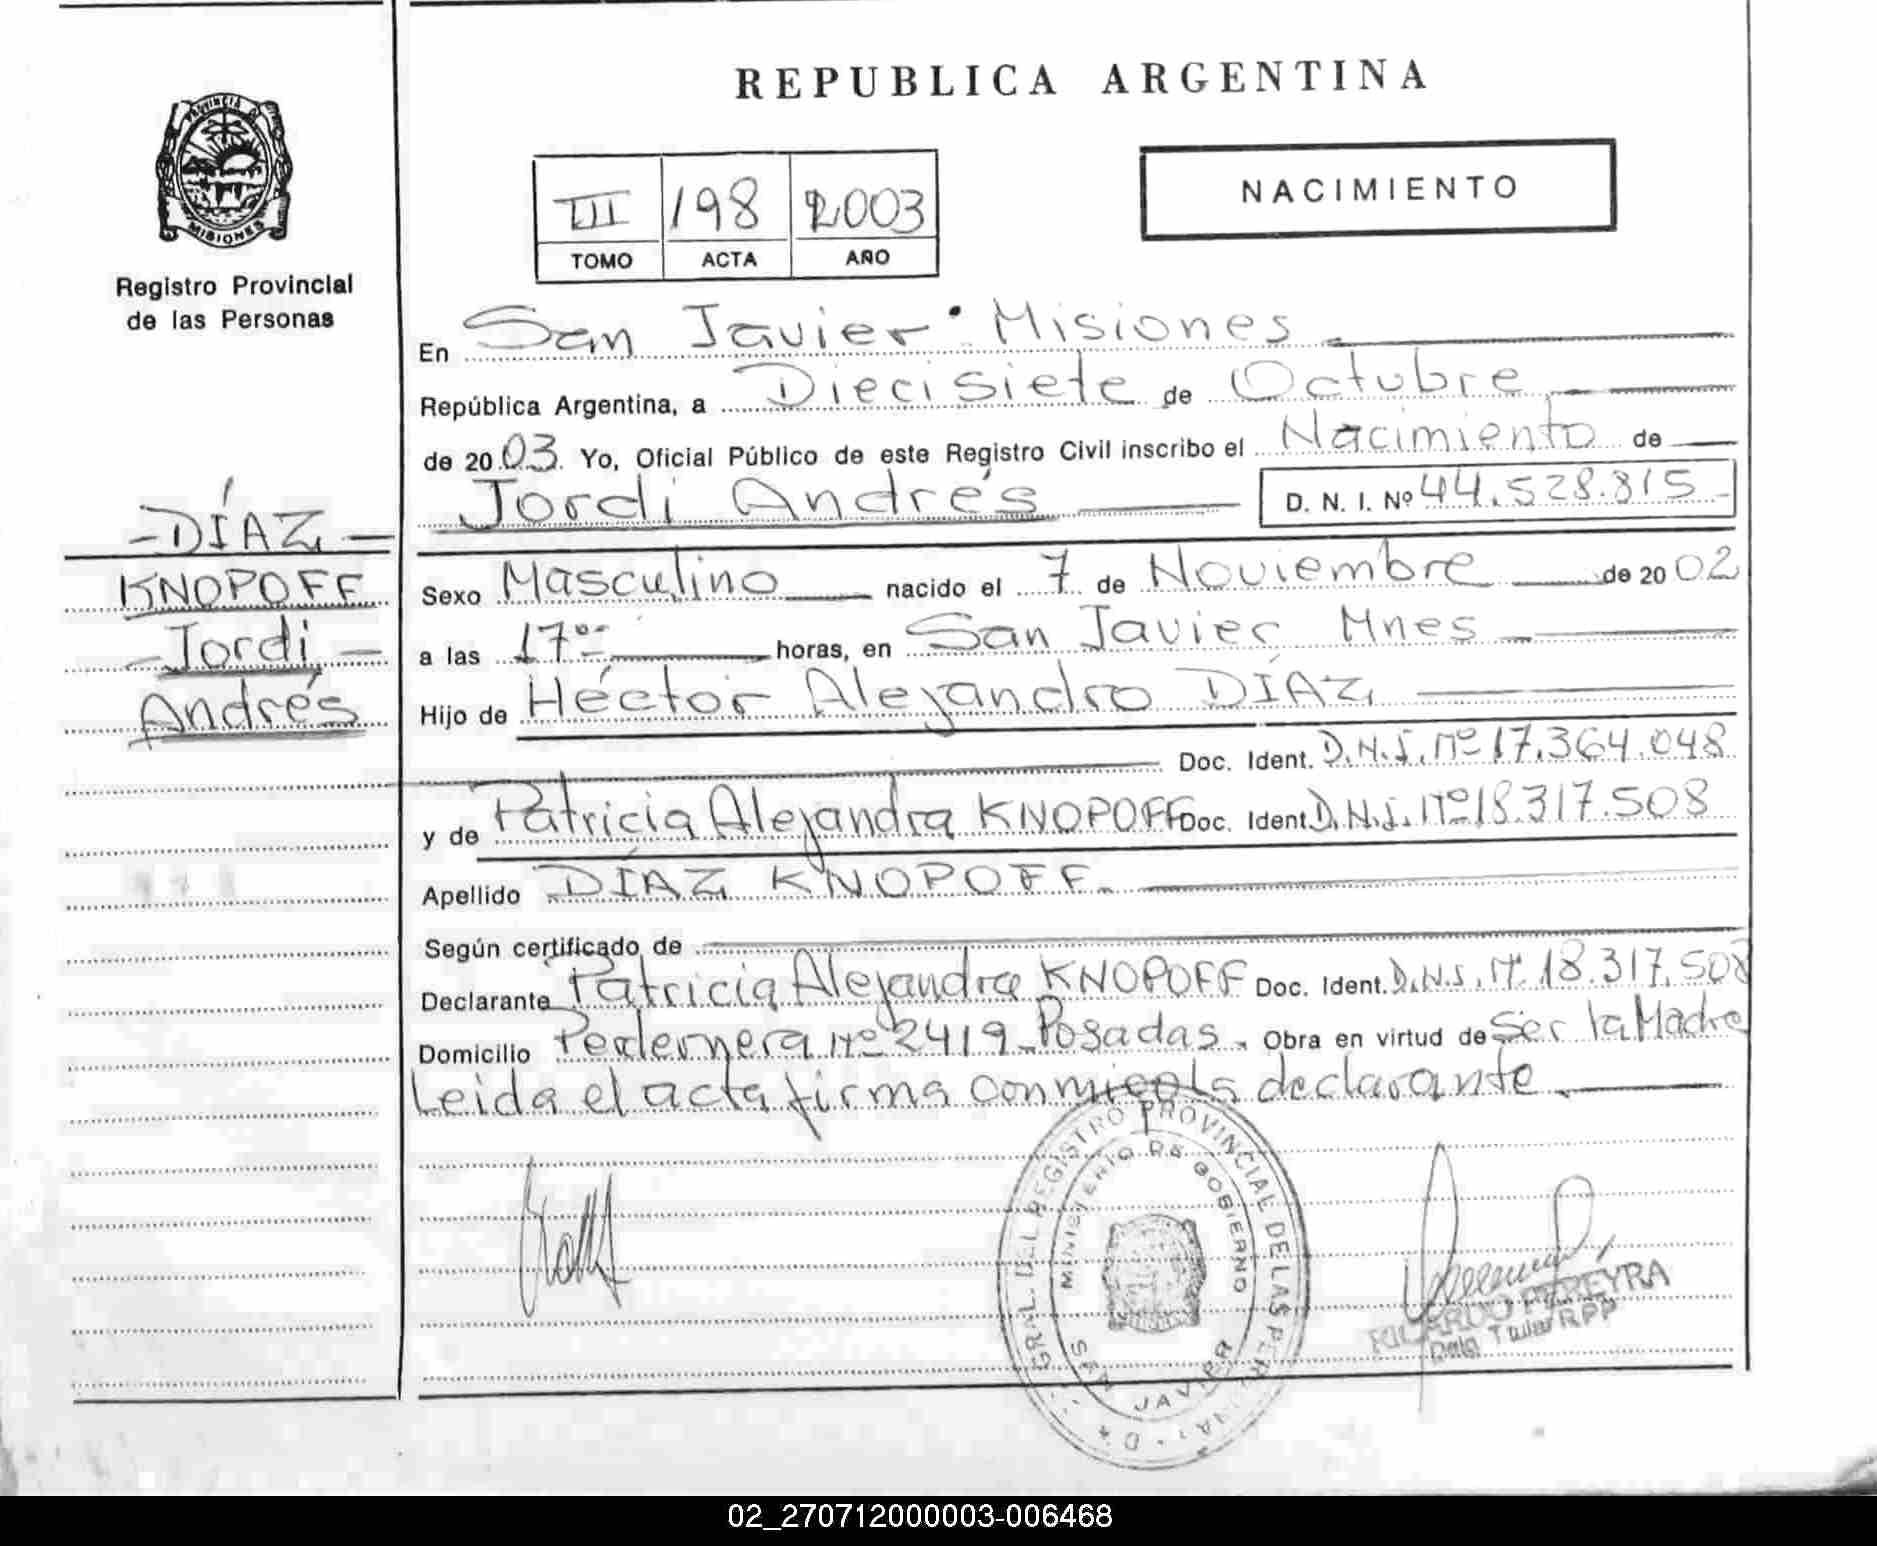 REPUBLICA ARGENTINA
PROVINCIA DE
MISIONES
Registro Provincial
de las Personas
NACIMIENTO
III 198 2003
TOMO ACTA AÑO
En San Javier · Misiones
República Argentina, a Diecisiete de Octubre
de 2003. Yo, Oficial Público de este Registro Civil inscribo el Nacimiento de
Jordi Andrés D. N. I. Nº 44.528.815
- DÍAZ -
KNOPOFF
- Jordi -
Andrés
Sexo Masculino nacido el 7 de Noviembre de 2002
a las 17 horas, en San Javier Mnes
Hijo de Héctor Alejandro DÍAZ
Doc. Ident. D.N.I. Nº 17.364.048
y de Patricia Alejandra KNOPOFF Doc. Ident. D.N.I. Nº 18.317.508
Apellido DÍAZ KNOPOFF.
Según certificado de
Declarante Patricia Alejandra KNOPOFF Doc. Ident. D.N.I. Nº 18.317.508
Domicilio Pedernera nº 2419 - Posadas. Obra en virtud de Ser la Madre
Leida el acta firma conmigo la declarante
GRAL. DEL REGISTRO PROVINCIAL DE LAS
MINISTERIO DE GOBIERNO
SAN JAVIER
RICARDO PEREYRA
Titular RPP
02_270712000003-006468